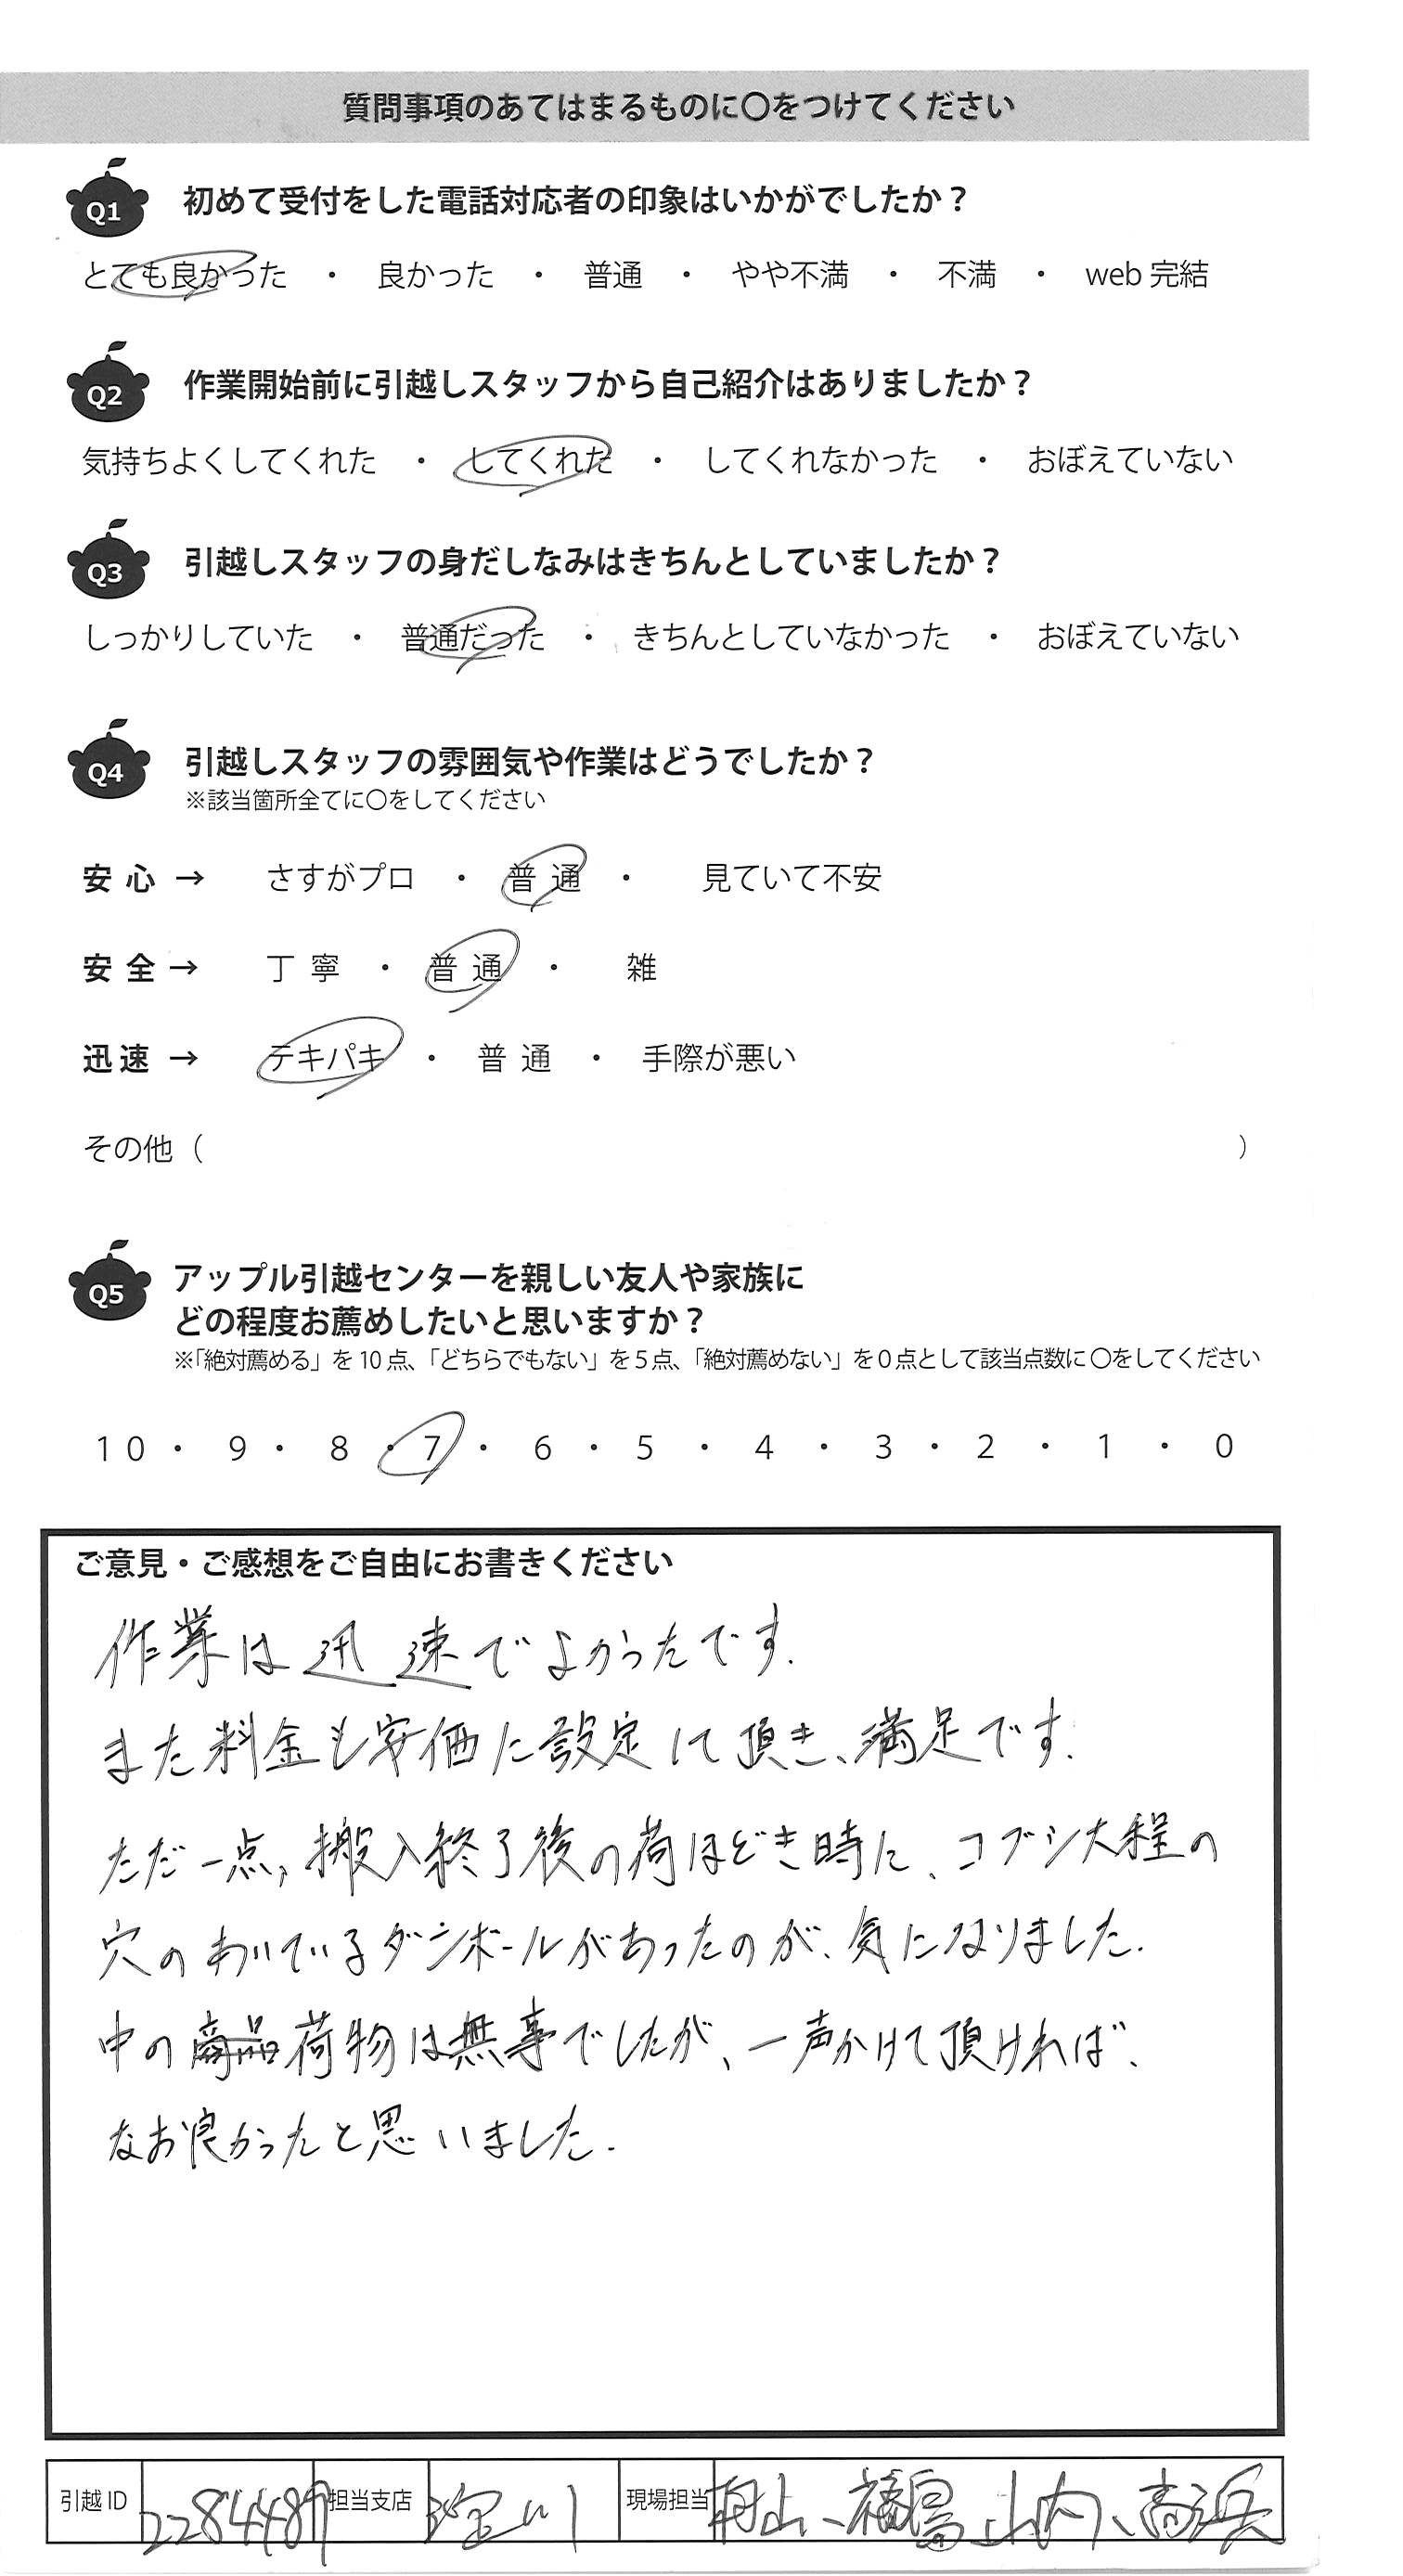 質問事項のあてはまるものに〇をつけてください
Q1 初めて受付をした電話対応者の印象はいかがでしたか？
とても良かった ・ 良かった ・ 普通 ・ やや不満 ・ 不満 ・ web 完結
Q2 作業開始前に引越しスタッフから自己紹介はありましたか？
気持ちよくしてくれた ・ してくれた ・ してくれなかった ・ おぼえていない
Q3 引越しスタッフの身だしなみはきちんとしていましたか？
しっかりしていた ・ 普通だった ・ きちんとしていなかった ・ おぼえていない
Q4 引越しスタッフの雰囲気や作業はどうでしたか？
※該当箇所全てに〇をしてください
安 心 → さすがプロ ・ 普 通 ・ 見ていて不安
安 全 → 丁 寧 ・ 普 通 ・ 雑
迅 速 → テキパキ ・ 普 通 ・ 手際が悪い
その他（ ）
Q5 アップル引越センターを親しい友人や家族に
どの程度お薦めしたいと思いますか？
※「絶対薦める」を 10 点、「どちらでもない」を 5 点、「絶対薦めない」を 0 点として該当点数に 〇をしてください
10 ・ 9 ・ 8 ・ 7 ・ 6 ・ 5 ・ 4 ・ 3 ・ 2 ・ 1 ・ 0
ご意見・ご感想をご自由にお書きください
作業は迅速でよかったです.
また料金も安価に設定して頂き、満足です.
ただ一点, 搬入終了後の荷ほどき時に、コブシ大程の
穴のあいているダンボールがあったのが、気になりました.
中の商品荷物は無事でしたが、一声かけて頂ければ、
なお良かったと思いました.
引越 ID 2284489 担当支店 淀川 現場担当 舟山、福冨、山内、高浜